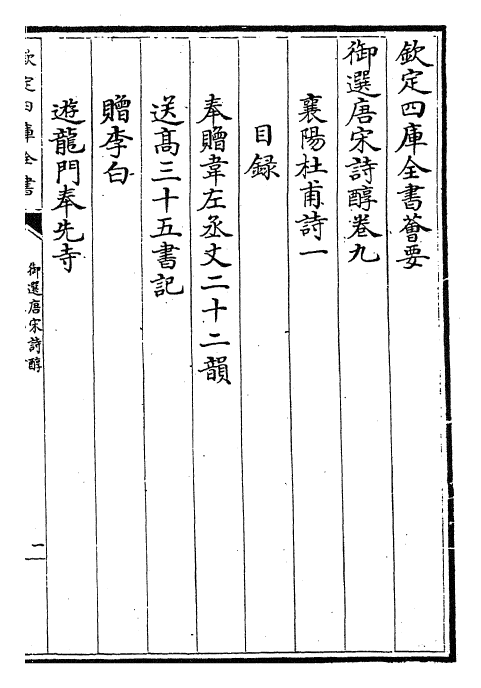 欽定四庫全書薈要
御選唐宋詩醇卷九
襄陽杜甫詩一
目録
奉贈韋左丞丈二十二韻
送髙三十五書記
贈李白
遊龍門奉先寺
欽定四庫全書
御選唐宋詩醇
一